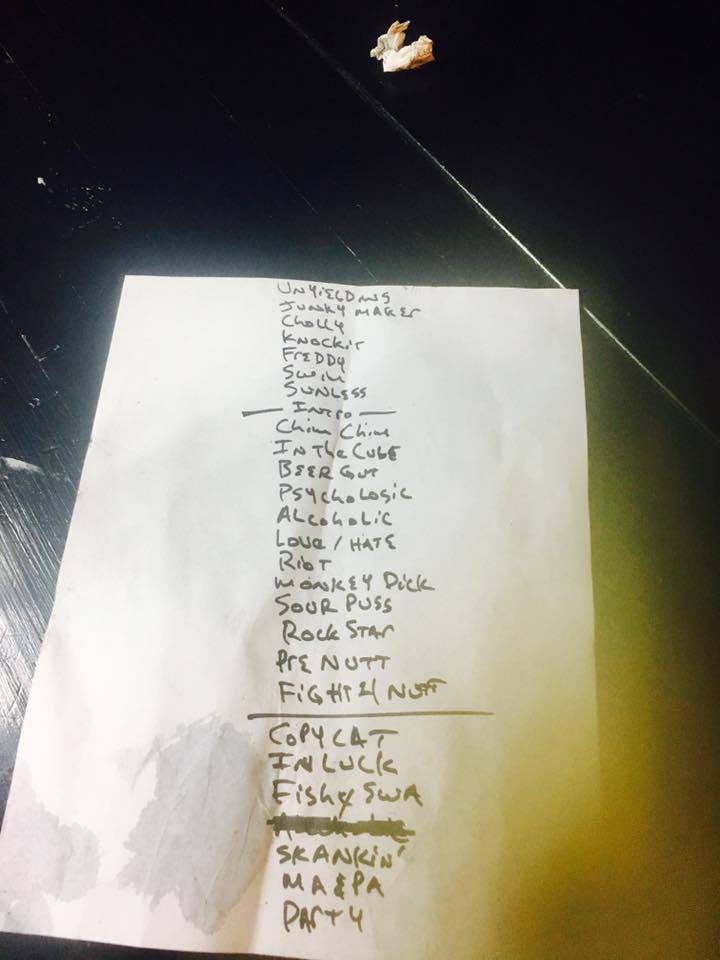 UNYIELDING
JUNKY MAKER
Cholly
KNOCKIT
FREDDY
SWIM
SUNLESS
— INTRO —
Chim Chim
IN The CUBE
BEER GUT
PSYCHOLOGIC
ALCOHOLIC
LOVE / HATE
RIOT
MONKEY DICK
SOUR PUSS
ROCK STAR
PRE NUTT
FIGHT 4 NUTT
COPY CAT
IN LUCK
FISHY SWA
SKANKIN'
MA & PA
PARTY